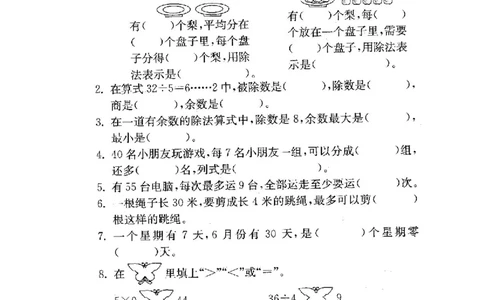 有(　　)个梨,平均分在
(　　)个盘子里,每个盘
子分得(　　)个梨,用除
法表示是(　　　　　　)。
有(　　)个梨,每(　　)
个放在一个盘子里,需要
(　　)个盘子,用除法表
示是(　　　　　　)。
2. 在算式32÷5=6……2中,被除数是(　　　),除数是(　　　),
商是(　　　),余数是(　　　)。
3. 在一道有余数的除法算式中,除数是8,余数最大是(　　　),
最小是(　　　)。
4. 40名小朋友玩游戏,每7名小朋友一组,可以分成(　　　)组,
还多(　　　)名,列式是(　　　　　　)。
5. 有55台电脑,每次最多运9台,全部运走至少要运(　　　)次。
6. 一根绳子长30米,要剪成4米的跳绳,最多可以剪(　　　)
根这样的跳绳。
7. 一个星期有7天,6月份有30天,是(　　　)个星期零
(　　　)天。
8. 在　　里填上“>”“<”或“=”。
36÷4　　9